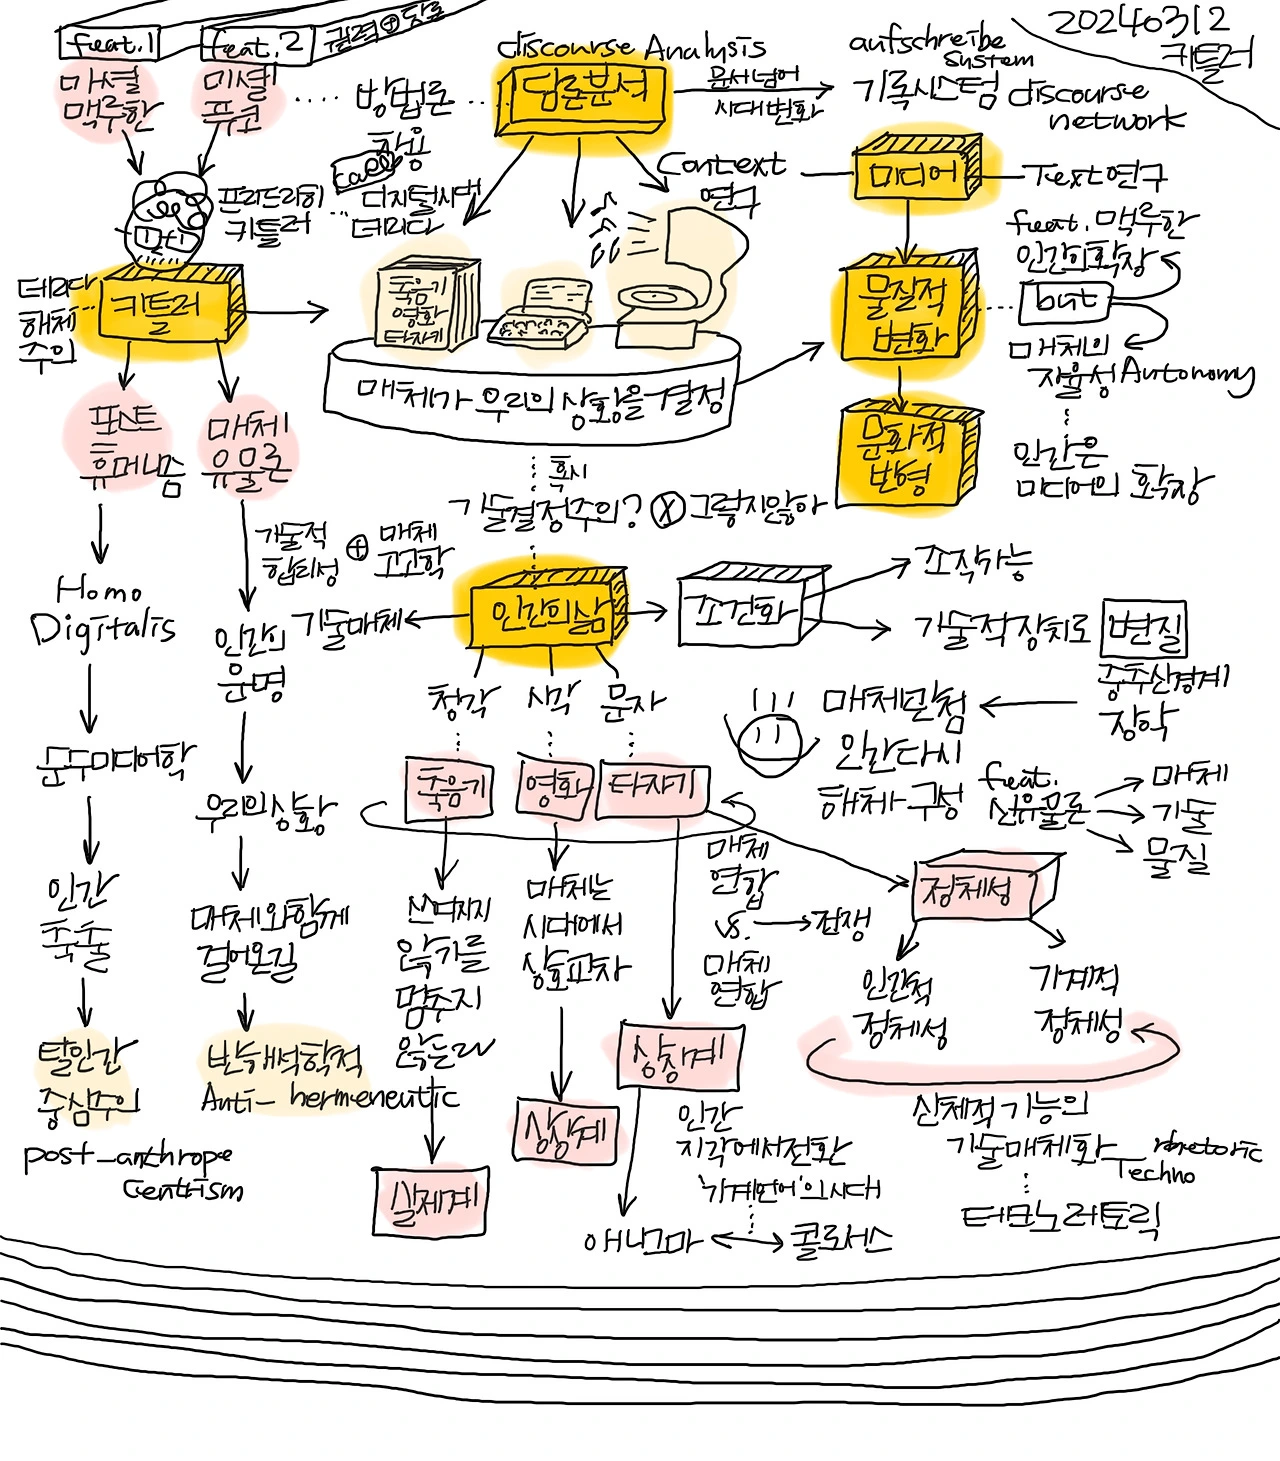 feat.1
feat.2
권력⊕담론
마셜
맥루한
미셸
푸코
방법론
차용
discourse Analysis
담론분석
문서넘어
시대변화
aufschreibe
system
기록시스템 discourse
network
20240312
키틀러
프리드리히
키틀러
call
디지털시대
데리다
Context
연구
미디어
Text연구
feat. 맥루한
인간의확장
but
매체의
자율성 Autonomy
인간은
미디어의 확장
데리다
해체
주의
키트러
축음기
영화
타자기
매체가 우리의 상황을 결정
물질적
변화
문화적
반영
포스트
휴머니즘
매체
유물론
혹시
기술결정주의? ⓧ 그렇지않아
기술적
합리성
⊕
매체
고고학
Homo
Digitalis
인간의
운명
기술매체
인간의삶
조건화
조작가능
기술적장치로 변질
청각
시각
문자
매체만첨
인간다시
해체구성
장학
feat.
신유물론
매체
기술
물질
군주미디어학
우리의상황
축음기
영화
타자기
인간
축출
매체와함께
걸어온길
악기를
멈추지
않는다
매체는
시대에서
상호교차
매체
연합
vs.
매체
연합
전쟁
정체성
인간적
정체성
기계적
정체성
탈인간
중심주의
post-anthrope
Centrism
반해석학적
Anti-hermeneutic
실제계
상상계
상징계
인간
지각에서전환
'기계언어'의시대
애니그마
콜로서스
신체적기능의
기술매체화
rhetoric
Techno
테크노레토릭